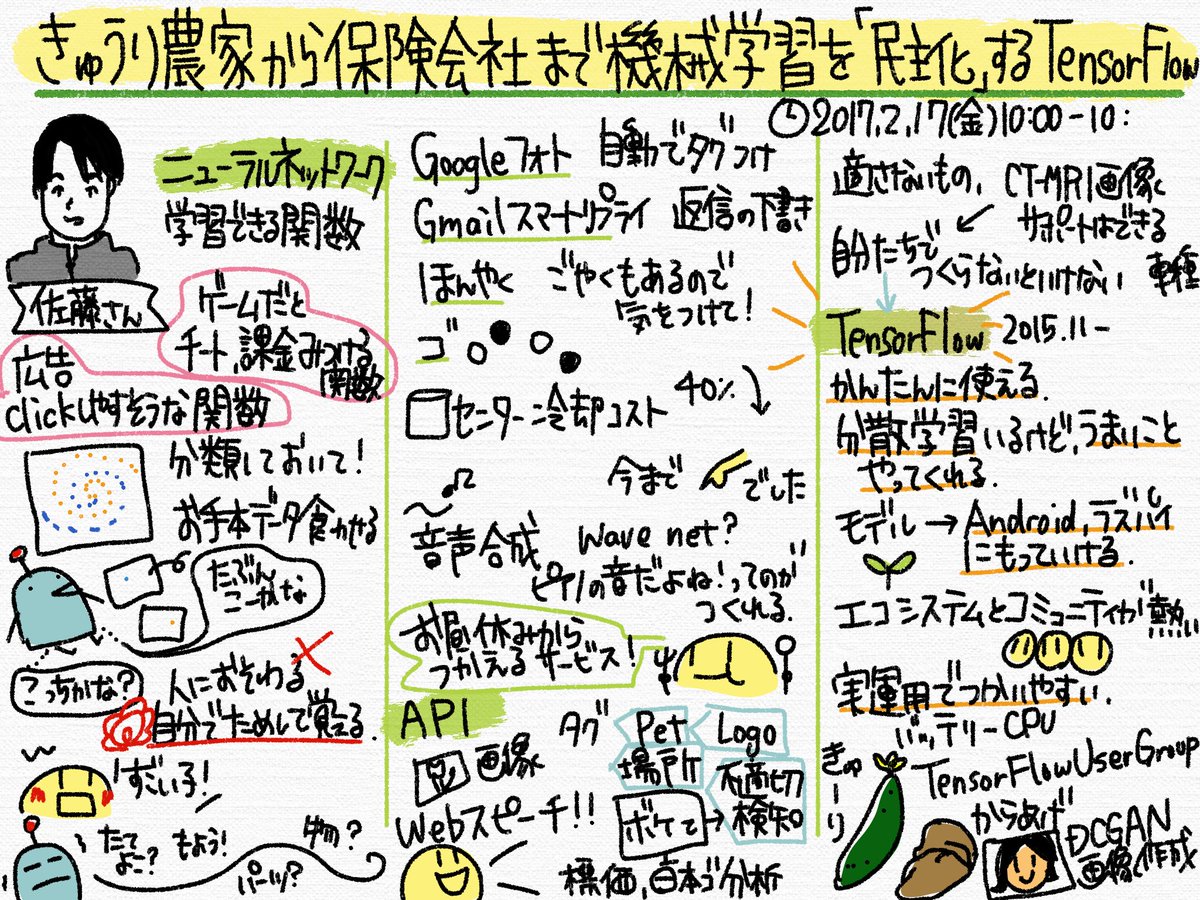 きゅうり農家から保険会社まで機械学習を「民主化」するTensorFlow
2017.2.17(金)10:00-10:
佐藤さん
ニューラルネットワーク
学習できる関数
ゲームだと
チート、課金みつける
関数
広告
clickしやすそうな関数
分類しておいて!
お手本データ食わせる
たぶん
こーかな
こっちかな?
人におそわる
自分でためして覚える.
すごい子!
たて
よこ?
もよう!
パーツ?
物?
Googleフォト 自動でタグつけ
Gmailスマートリプライ 返信の下書き
ほんやく ごやくもあるので
気をつけて!
ゴ
センター冷却コスト 40%
今まで
でした
音声合成 Wave net?
ピアノの音だよね!ってのが
つくれる.
お昼休みから
つかえるサービス!
API
画像
タグ Pet Logo
場所 不適切
検知
ボケて
Webスピーチ!!
標価,日本ゴ分析
適さないもの, CT-MRI画像く
サポートはできる
自分たちで
つくらないといけない 車種
TensorFlow 2015.11-
かんたんに使える.
分散学習いるけど,うまいこと
やってくれる.
モデル→Android,ラズパイ
にもっていける.
エコシステムとコミュニティが熱い
実運用でつかいやすい.
バッテリーCPU
きゅーり
TensorFlowUserGroup
からあげ
DCGAN
画像作成